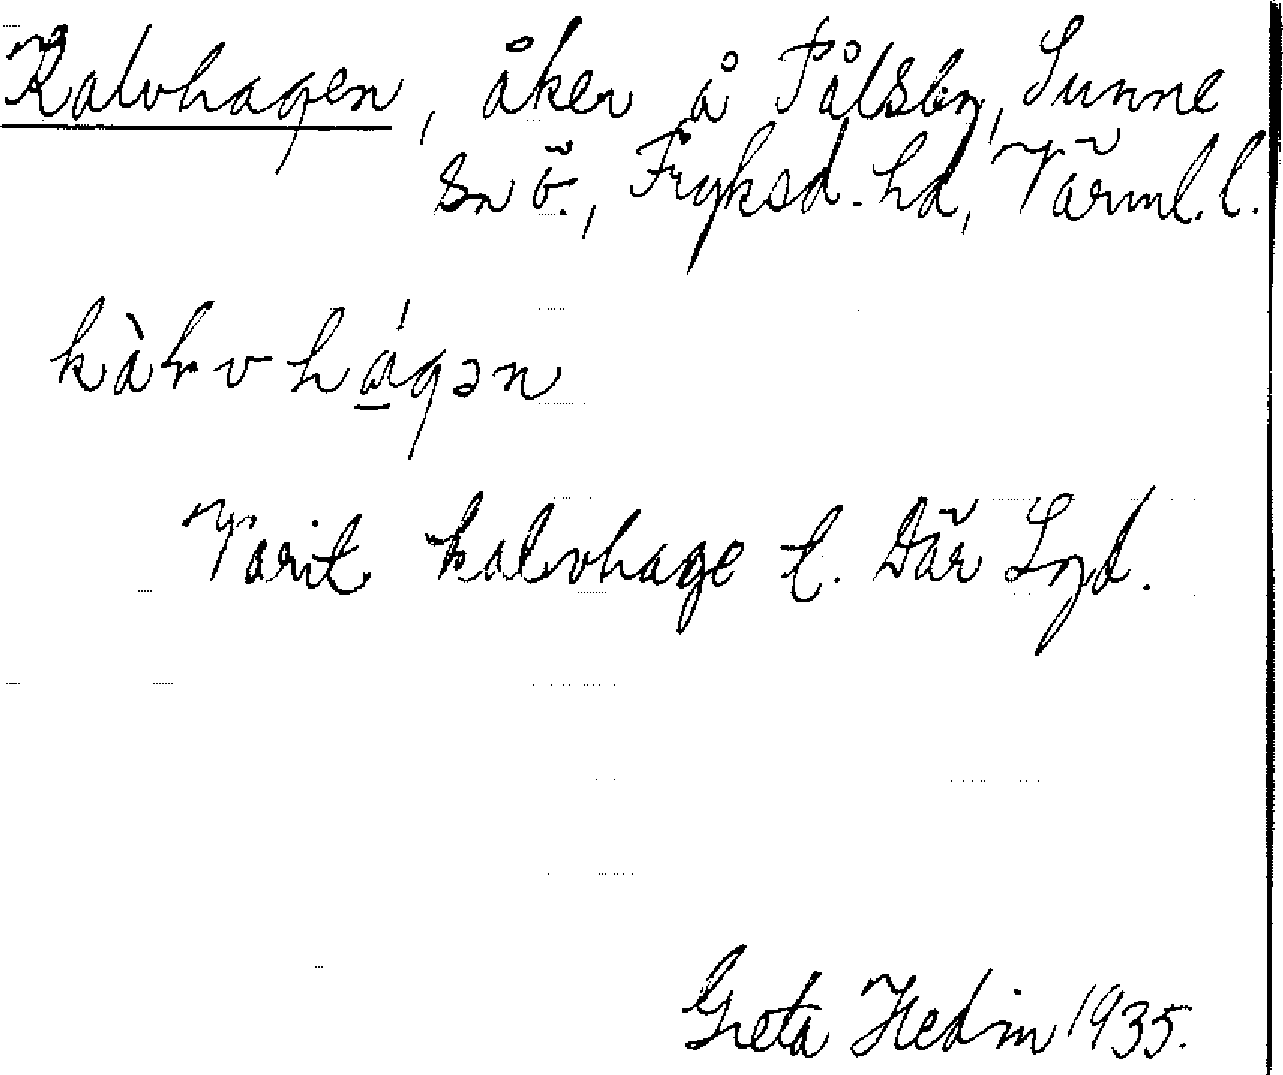 Kalvhagen, åker å Pålsby, Sunne
sn ö., Fryksd. hd, Värml. l.
kàɫvhágən
Varit kalvhage t. Där Lgd.
Greta Hedin 1935.